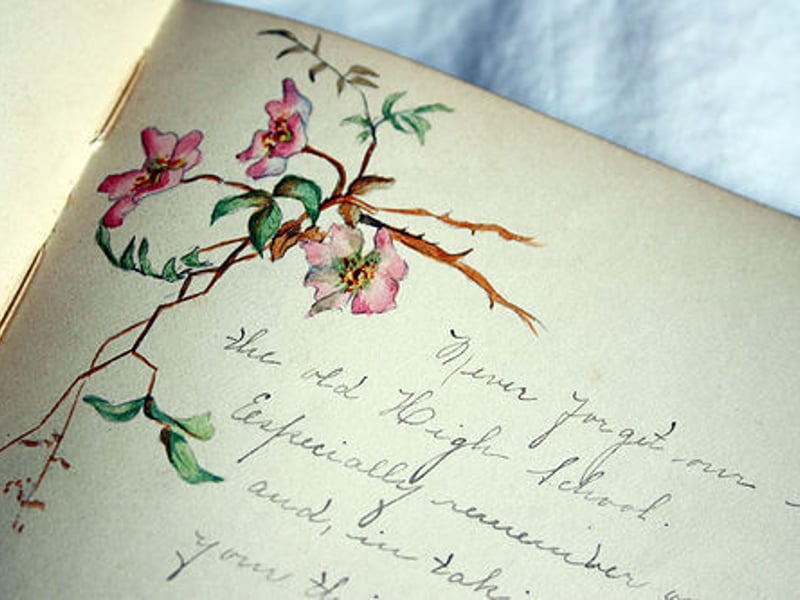 Never forget our
the old High School.
Eespecially remember
and, in taki
your